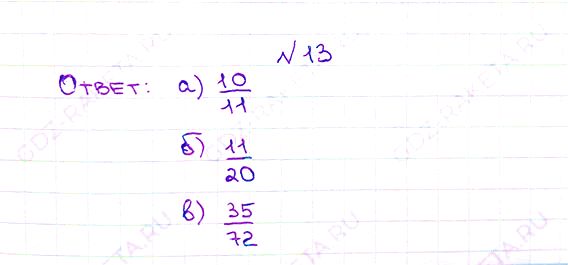 № 13
Ответ: а) 10/11
б) 11/20
в) 35/72
GDZ-RAKETA.RU